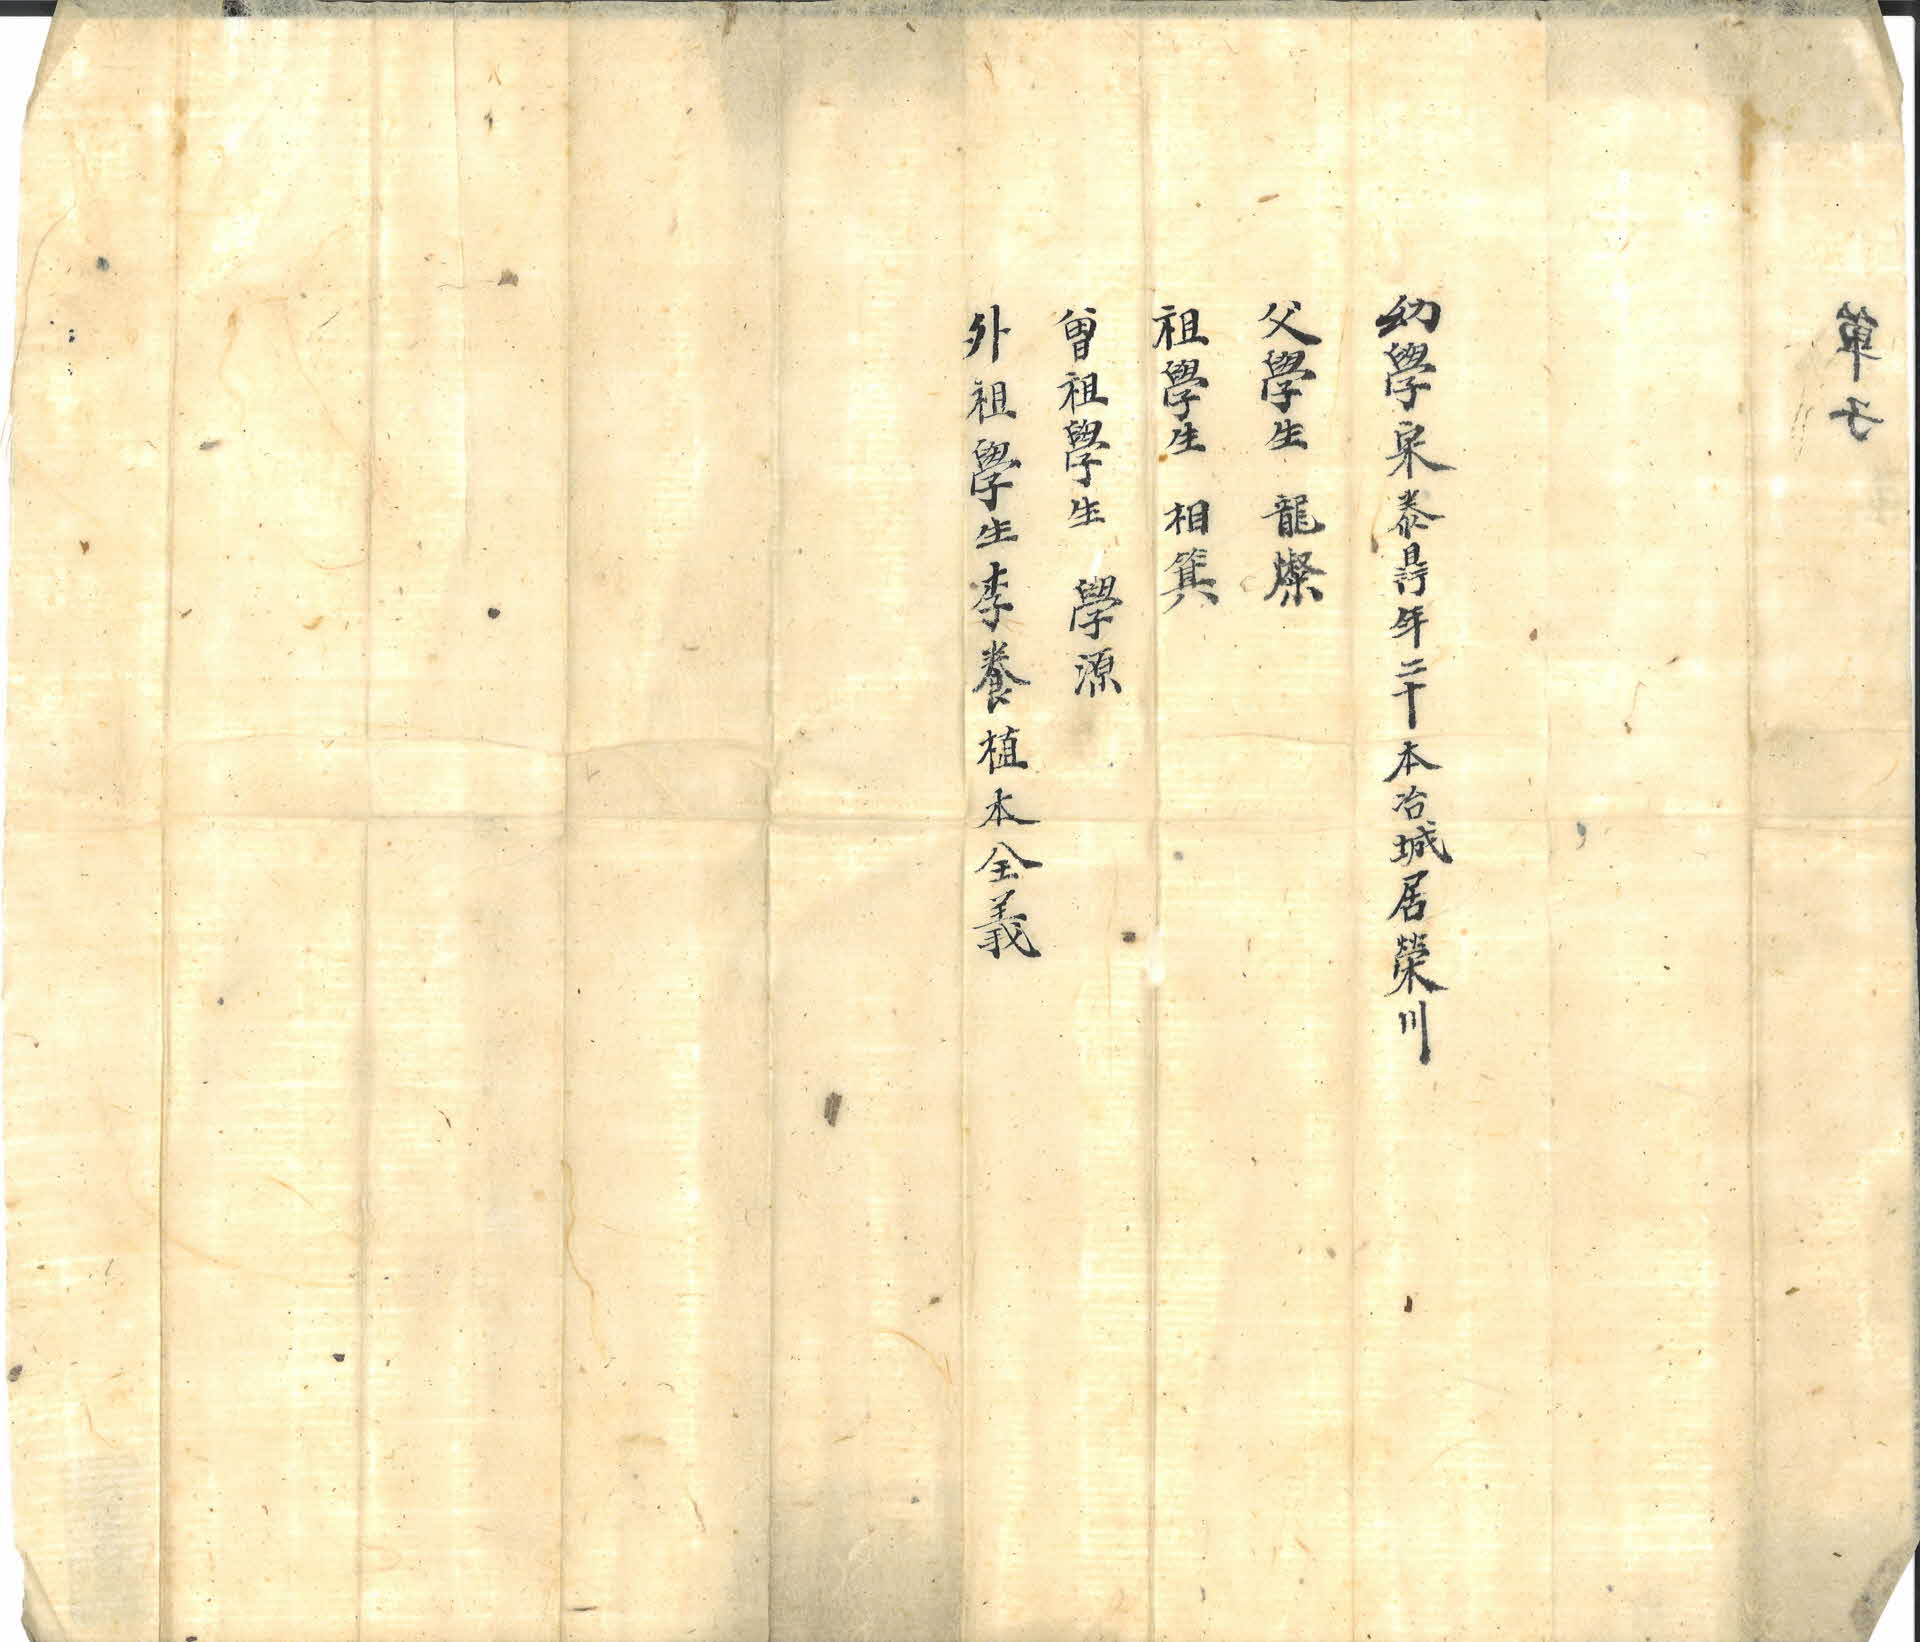 單子
幼學宋泰年二十本冶城居榮川
父學生 龍燦
祖學生 相箕
曾祖學生 學源
外祖學生李養植本全義